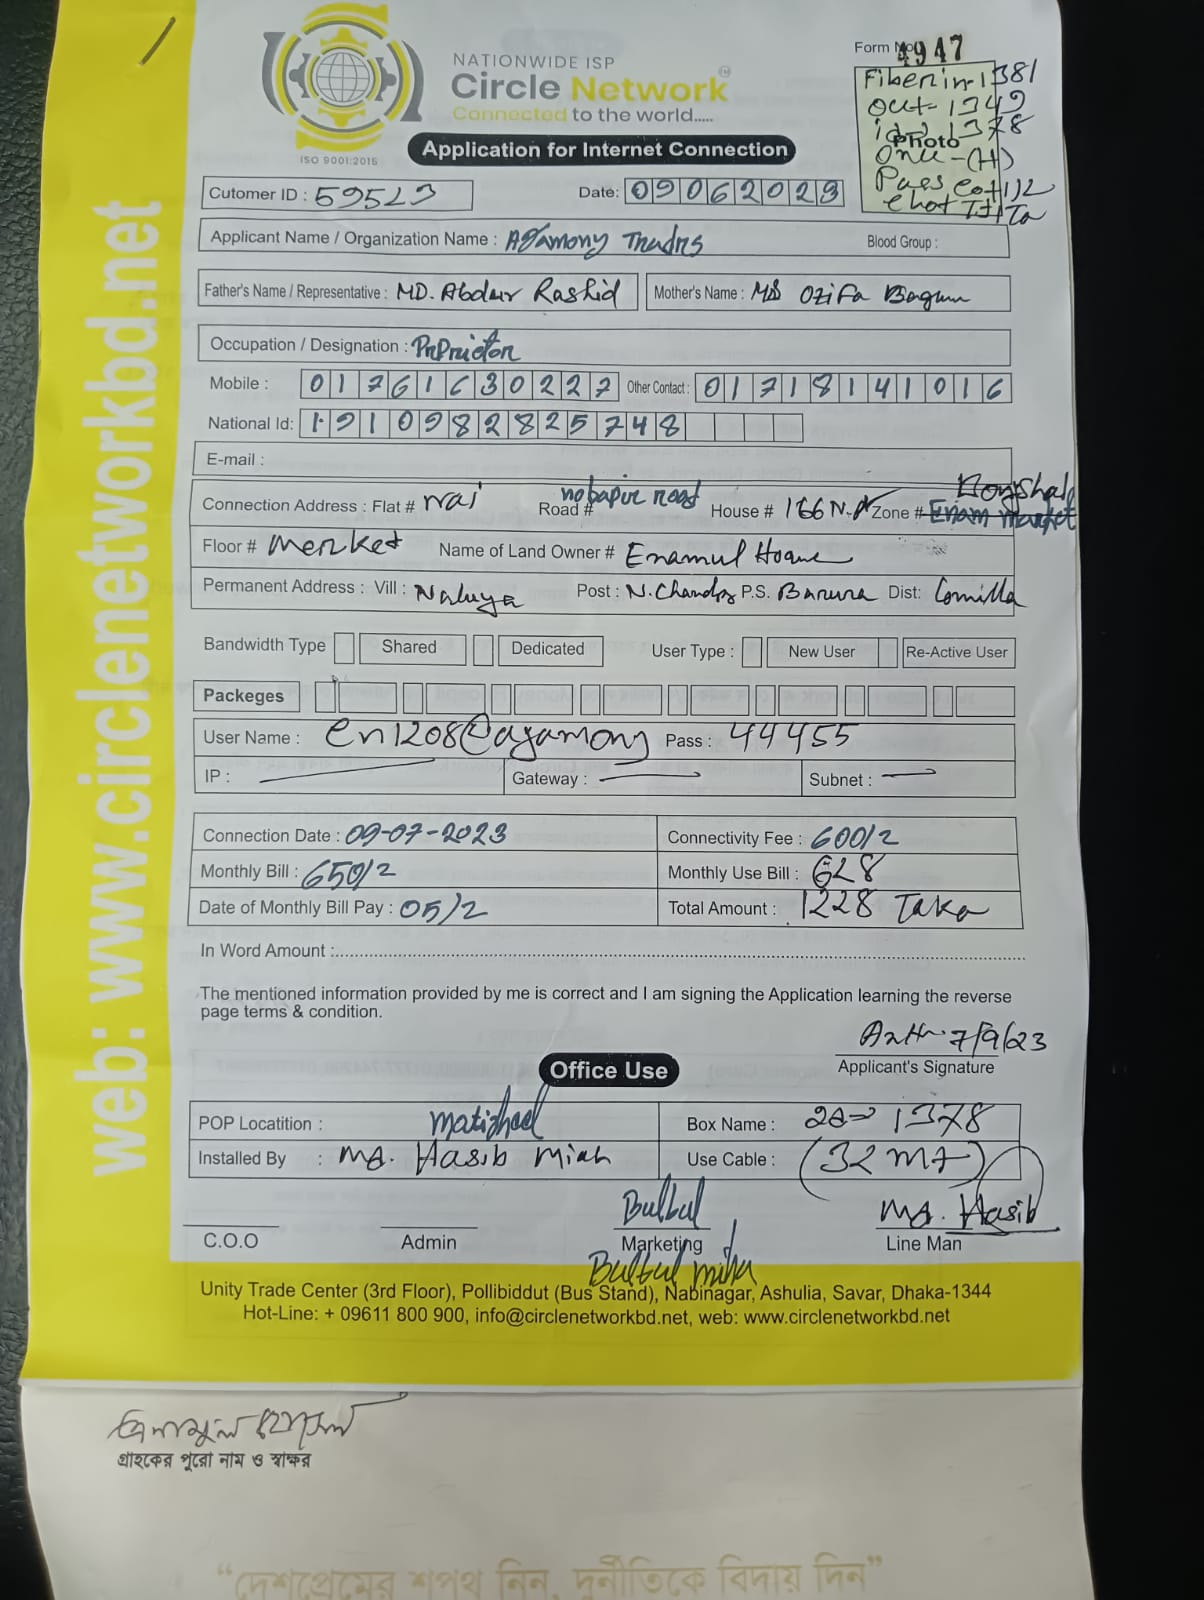 NATIONWIDE ISP
Circle Network
Connected to the world.....
ISO 9001:2015
Form No 4947
Fiber in-1381
Out-1349
id 1378
Photo
Onu-(H)
Application for Internet Connection
Cutomer ID : 59523
Date: 09062023
Applicant Name / Organization Name : Agamony Traders
Blood Group :
Father's Name / Representative : MD. Abdur Rashid
Mother's Name : Ozifa Bagum
Occupation / Designation : Proprietor
Mobile : 01761630227
Other Contact : 01718141016
National Id: 1910982825748
E-mail :
Connection Address : Flat # nai Road # nobapur road House # 166 N.A Zone # Enam market
Floor # Merket Name of Land Owner # Enamul Hoque
Permanent Address : Vill : Naluya Post : N. Chandra P.S. Barura Dist: Comilla
Bandwidth Type Shared Dedicated User Type : New User Re-Active User
Packeges
User Name : en1208@agamony Pass : 44455
IP : Gateway : Subnet :
Connection Date : 09-07-2023 Connectivity Fee : 600/2
Monthly Bill : 650/2 Monthly Use Bill : 628
Date of Monthly Bill Pay : 05/2 Total Amount : 1228 Taka
In Word Amount :
The mentioned information provided by me is correct and I am signing the Application learning the reverse
page terms & condition.
7/9/23
Applicant's Signature
Office Use
POP Locatition : Matizheel Box Name : 1378
Installed By : Md. Hasib Miah Use Cable : (32 mt)
Bulbul Md. Hasib
C.O.O Admin Marketing Line Man
Bulbul miha
Unity Trade Center (3rd Floor), Pollibiddut (Bus Stand), Nabinagar, Ashulia, Savar, Dhaka-1344
Hot-Line: + 09611 800 900, info@circlenetworkbd.net, web: www.circlenetworkbd.net
web: www.circlenetworkbd.net
এনামুল হোসেন
গ্রাহকের পুরো নাম ও স্বাক্ষর
“দেশপ্রেমের শপথ নিন, দুর্নীতিকে বিদায় দিন”